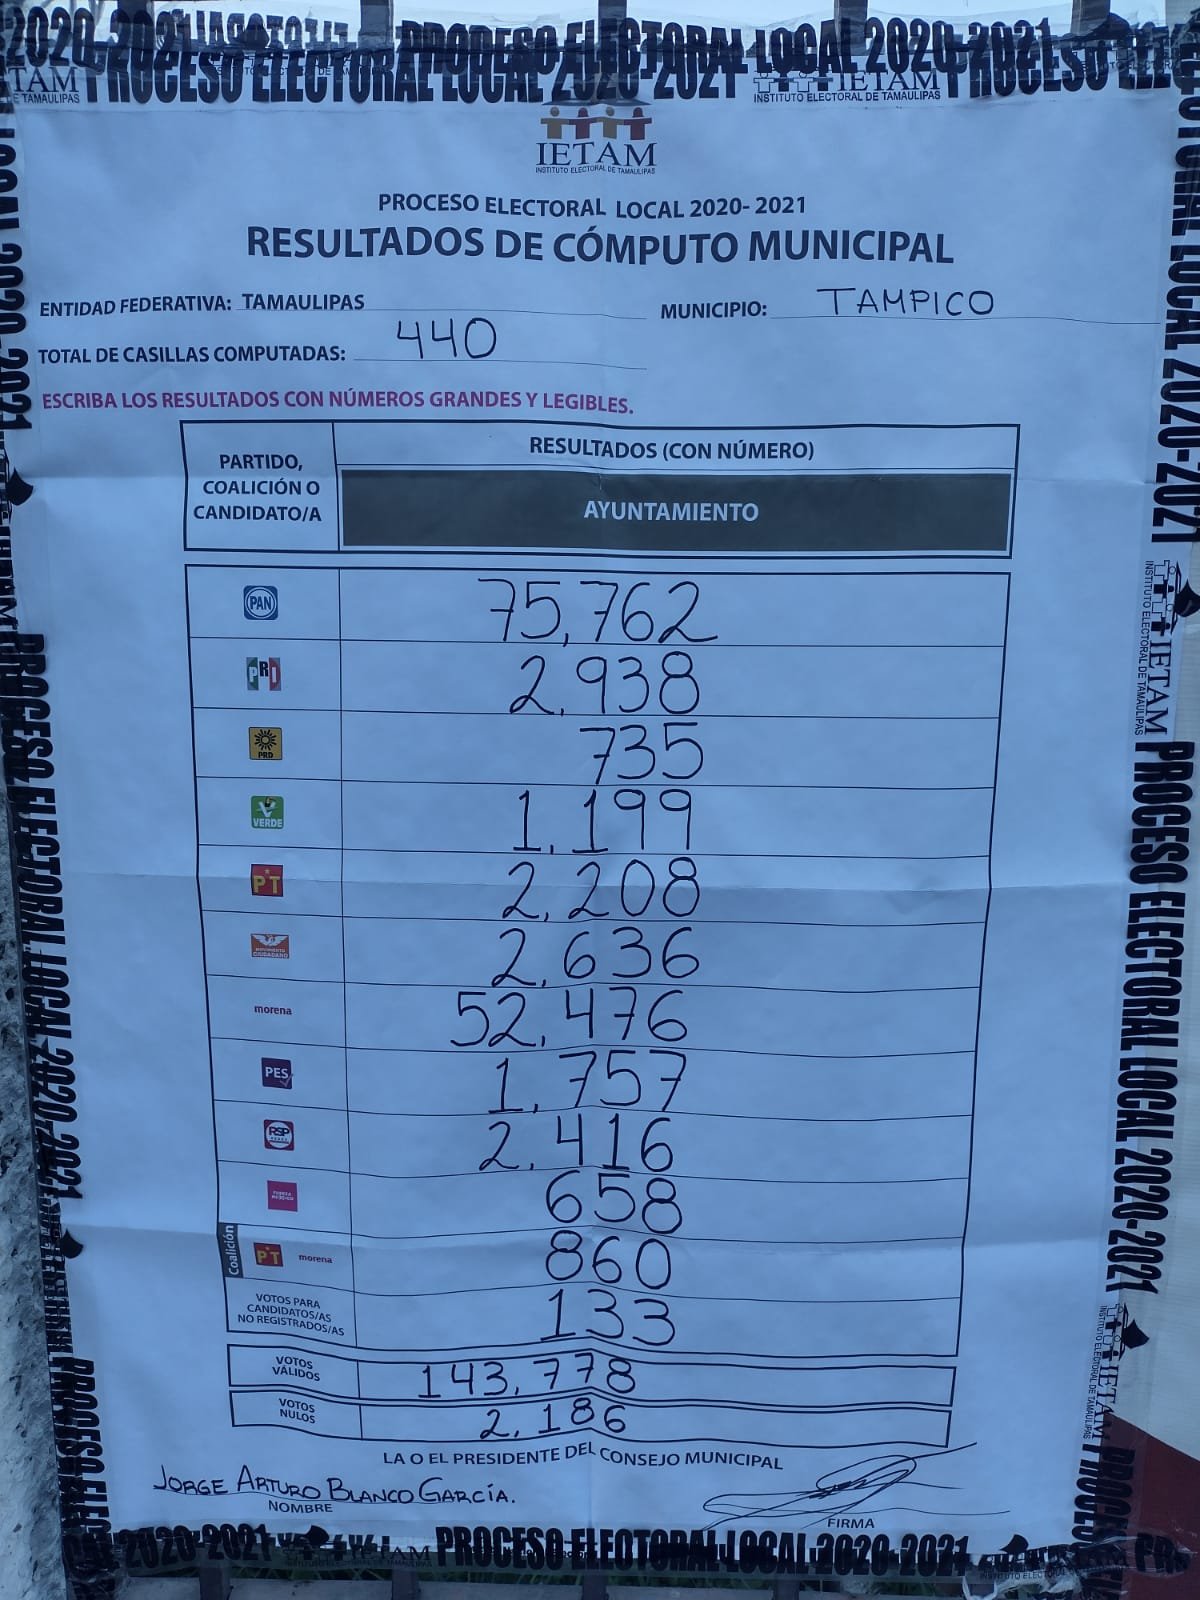 PROCESO ELECTORAL LOCAL 2020-2021
IETAM
INSTITUTO ELECTORAL DE TAMAULIPAS
IETAM
INSTITUTO ELECTORAL DE TAMAULIPAS
PROCESO ELECTORAL LOCAL 2020- 2021
RESULTADOS DE CÓMPUTO MUNICIPAL
ENTIDAD FEDERATIVA: TAMAULIPAS MUNICIPIO: TAMPICO
TOTAL DE CASILLAS COMPUTADAS: 440
ESCRIBA LOS RESULTADOS CON NÚMEROS GRANDES Y LEGIBLES.
PARTIDO, COALICIÓN O CANDIDATO/A
RESULTADOS (CON NÚMERO)
AYUNTAMIENTO
PAN 75,762
PRI 2,938
PRD 735
VERDE 1,199
PT 2,208
MOVIMIENTO CIUDADANO 2,636
morena 52,476
PES 1,757
RSP 2,416
FUERZA MÉXICO 658
Coalición PT morena 860
VOTOS PARA CANDIDATOS/AS NO REGISTRADOS/AS 133
VOTOS VÁLIDOS 143,778
VOTOS NULOS 2,186
LA O EL PRESIDENTE DEL CONSEJO MUNICIPAL
JORGE ARTURO BLANCO GARCÍA.
NOMBRE
FIRMA
PROCESO ELECTORAL LOCAL 2020-2021